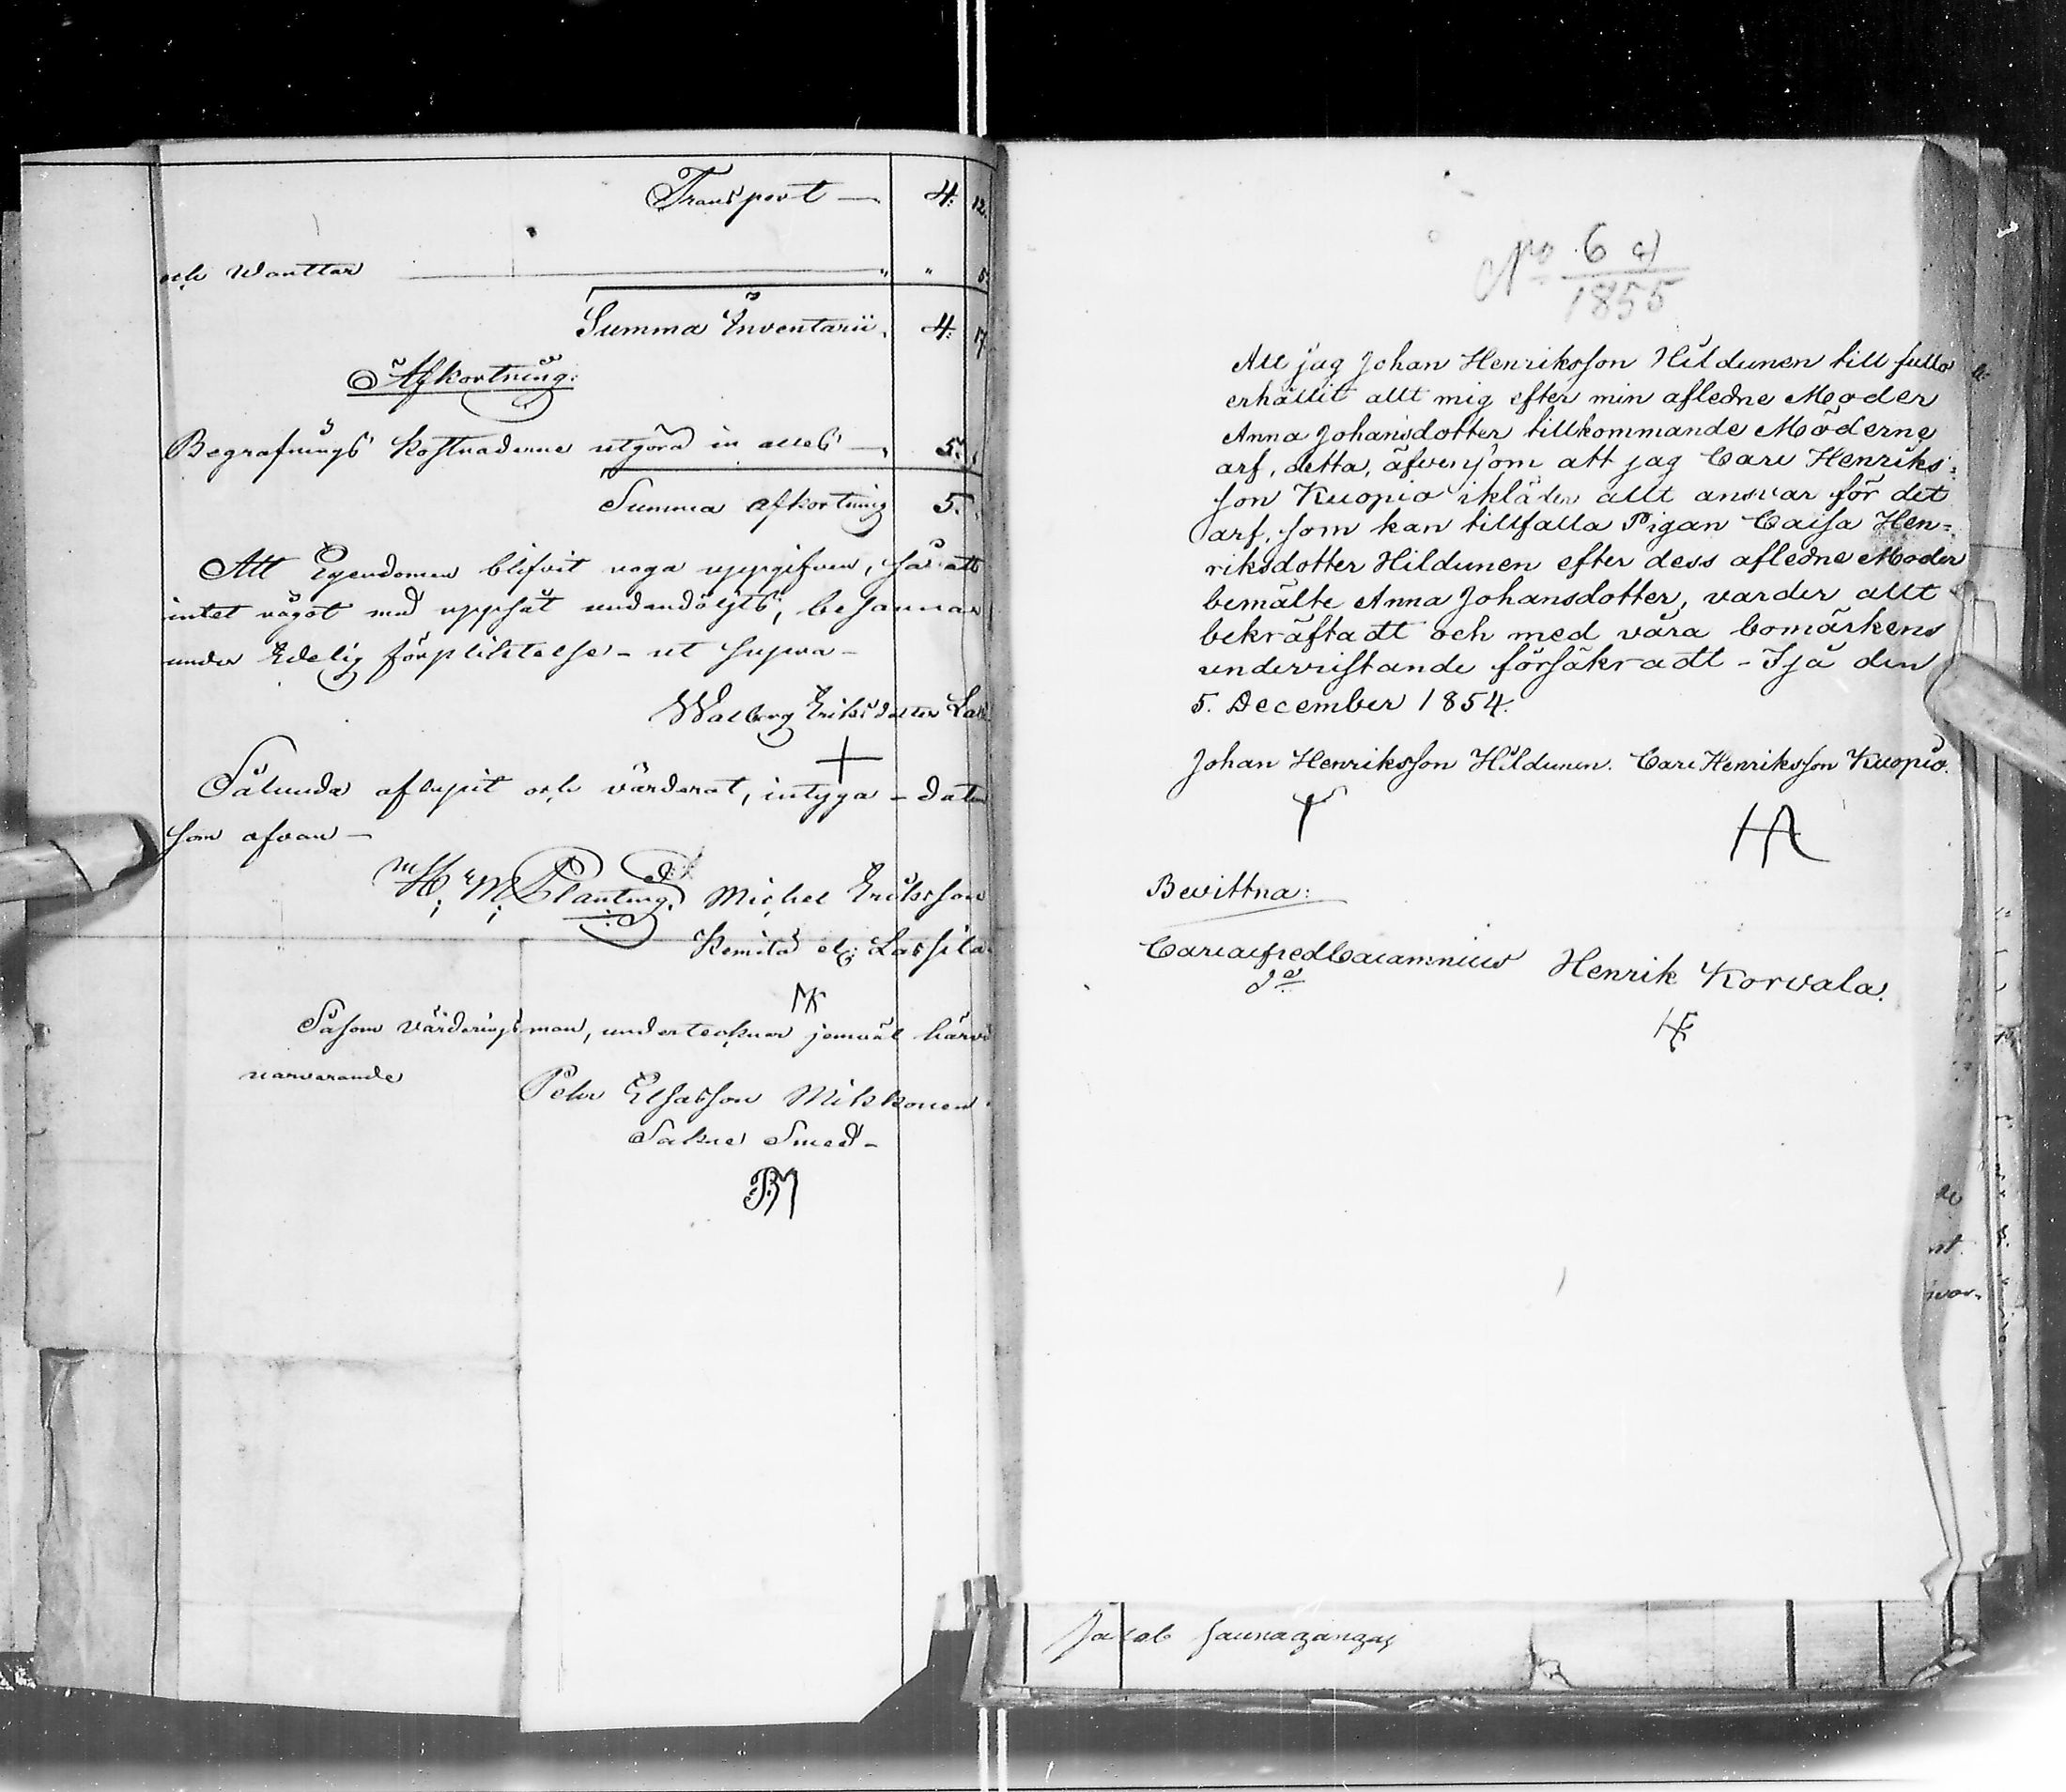 Transport — 4: 12.
och Wanttar " " 5
Summa Inventarii. 4: 17
Afkortning:
Begrafnings kostnaderne utgöra in alles — 5.
Summa afkortning 5.
Att Egendomen blifvit noga uppgifven, så att
intet något med uppsåt undandöljts, besannar
under Edelig förpliktelse - ut supra -
Walborg Eriksdotter
+
Sålunda aflupit och värderat, intyga - datum
som ofvan —
H: M: Planting. Michel Eriksson
Kemilä el: Lassila
MK
Såsom Värderingsman, undertecknar jemväl
narvarande
Pehr Elsasson Mikkonen
Sakne Smed -
PM
No 6 d
1855
Att jag Johan Henriksson Hildunen till fullo
erhållit allt mig efter min afledne Moder
Anna Johansdotter tillkommande Möderne
arf, detta, äfvensom att jag Carl Henriks=
son Kuopio ikläder allt ansvar för det
arf, som kan tillfalla Pigan Caisa Hen=
riksdotter Hildunen efter dess afledne Moder
bemälte Anna Johansdotter, varder allt
bekräftadt och med våra bomärkens
underristande försäkradt - Ijå den
5. December 1854.
Johan Henriksson Hildunen. Carl Henriksson Kuopio.
Bevittna:
Carl Alfred Calamnius Henrik Korvala.
Jacob